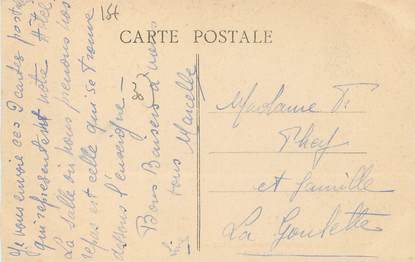 154
CARTE POSTALE
Je vous envoie ces 2 cartes postales
qui représentent notre Hôtel
La Salle où nous prenons nos
repas est celle qui se trouve
dessous l'enseigne —
Bons Baisers à vous
tous Marcelle
Madame
et famille
La Goulette